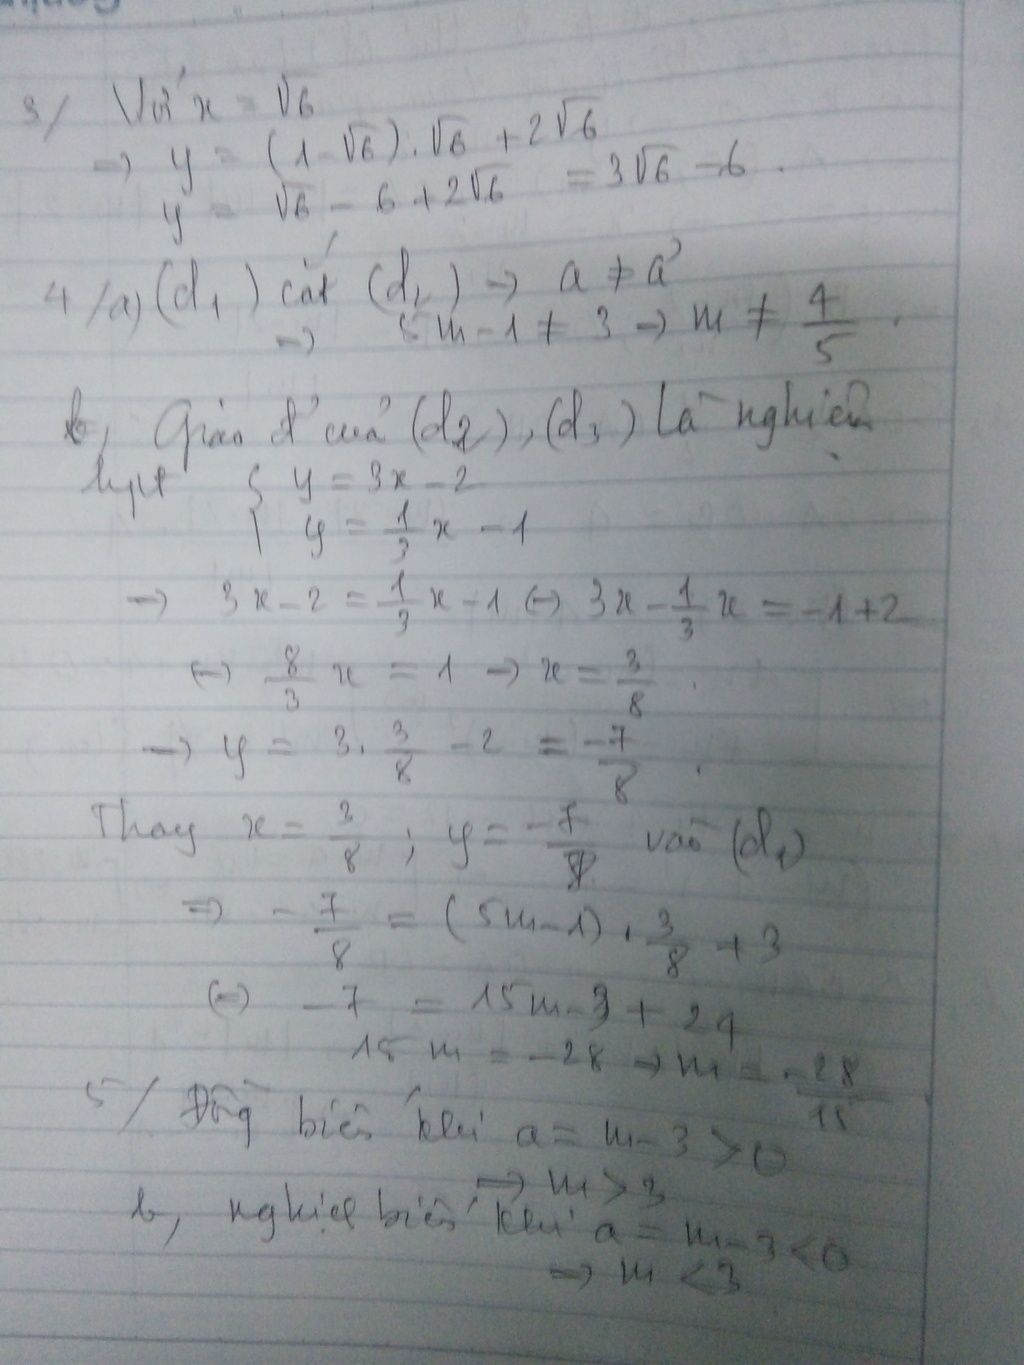 3/ Với x = √6
→ y = (1-√6).√6 + 2√6
y = √6 - 6 + 2√6 = 3√6 - 6.
4/a) (d1) cắt (d2) → a ≠ a'
→ 5m-1 ≠ 3 → m ≠ 4/5.
b, Giao đ' của (d2), (d3) là nghiệm
hpt { y = 3x - 2
y = 1/3 x - 1
→ 3x - 2 = 1/3 x - 1 (→ 3x - 1/3 x = -1 + 2
(→ 8/3 x = 1 → x = 3/8.
→ y = 3. 3/8 - 2 = -7/8.
Thay x = 3/8 ; y = -7/8 vào (d1)
=> - 7/8 = (5m-1). 3/8 + 3
(=) -7 = 15m - 3 + 24
15m = -28 → m = -28/15
5/ Đồng biến khi a = m-3 > 0
→ m > 3
b, nghịch biến khi a = m-3 < 0
→ m < 3